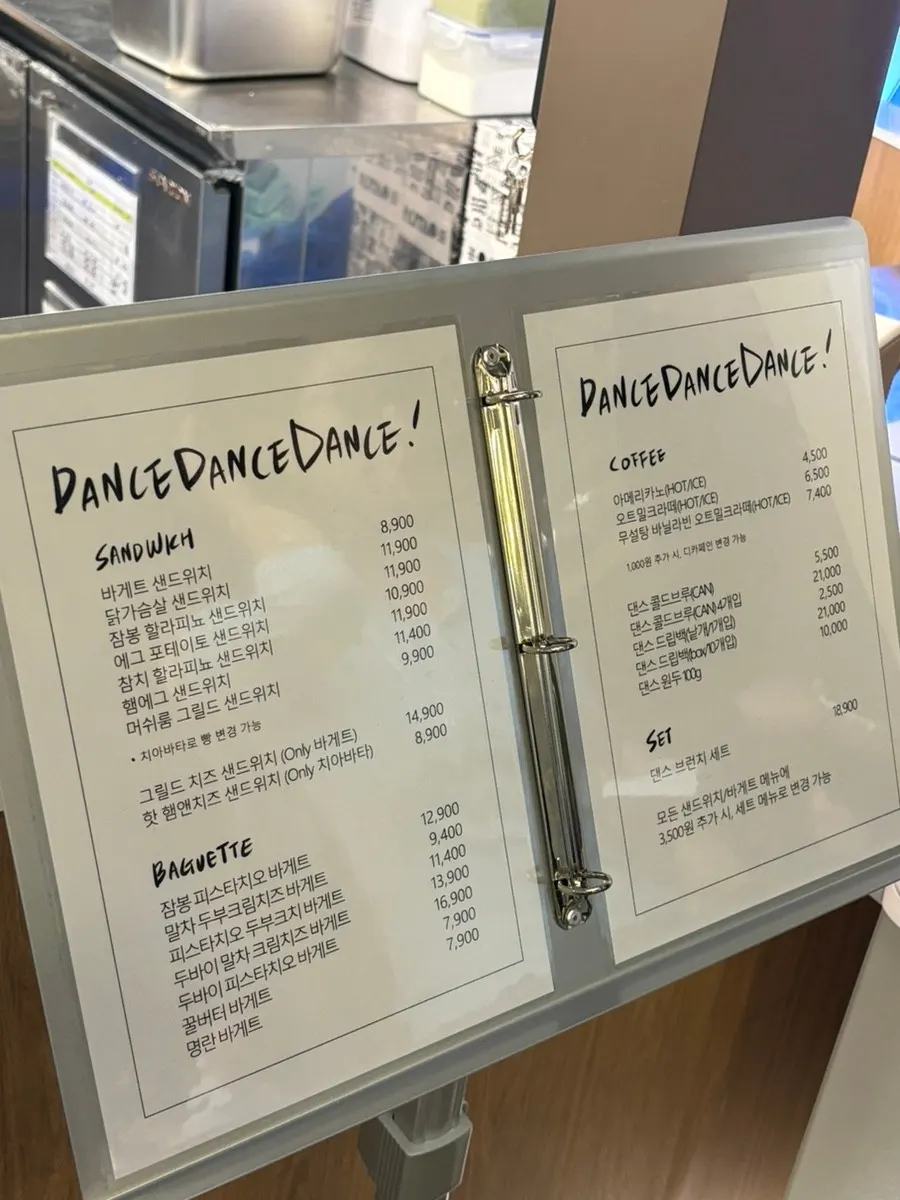 DANCEDANCEDANCE!
SANDWICH
바게트 샌드위치 8,900
닭가슴살 샌드위치 11,900
잠봉 할라피뇨 샌드위치 11,900
에그 포테이토 샌드위치 10,900
참치 할라피뇨 샌드위치 11,900
햄에그 샌드위치 11,400
머쉬룸 그릴드 샌드위치 9,900
• 치아바타로 빵 변경 가능
그릴드 치즈 샌드위치 (Only 바게트) 14,900
핫 햄앤치즈 샌드위치 (Only 치아바타) 8,900
BAGUETTE
잠봉 피스타치오 바게트 12,900
말차 두부크림치즈 바게트 9,400
피스타치오 두부크치 바게트 11,400
두바이 말차 크림치즈 바게트 13,900
두바이 피스타치오 바게트 16,900
꿀버터 바게트 7,900
명란 바게트 7,900
DANCEDANCEDANCE!
COFFEE
아메리카노(HOT/ICE) 4,500
오트밀크라떼(HOT/ICE) 6,500
무설탕 바닐라빈 오트밀크라떼(HOT/ICE) 7,400
1,000원 추가 시, 디카페인 변경 가능
댄스 콜드브루(CAN) 5,500
댄스 콜드브루(CAN) 4개입 21,000
댄스 드립백(낱개/1개입) 2,500
댄스 드립백(box/10개입) 21,000
댄스 원두 100g 10,000
SET
댄스 브런치 세트 18,900
모든 샌드위치/바게트 메뉴에
3,500원 추가 시, 세트 메뉴로 변경 가능